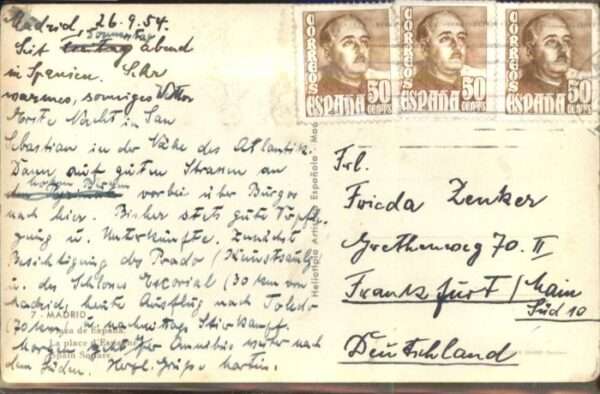 Madrid, 26.9.54.
Seit Donnerstag abend
in Spanien. Sehr
warmes, sonniges Wetter
Erste Nacht in San
Sebastian in der Nähe des Atlantik.
Dann auf guten Strassen an
hohen Bergen vorbei über Burgos
nach hier. Bisher stets gute Verpfle-
gung u. Unterkünfte. Zunächst
Besichtigung des Prado (Kunstsamlg)
u. des Schloss Escorial (30 km von
Madrid, heute Ausflug nach Toledo
(70 km) u. nachmittags Stierkampf.
Morgen geht der Omnibus weiter nach
dem Süden. Herzl. Grüsse Martin.
7 - MADRID
Plaza de España
La place d'Espagne
Spain Square
Heliotipia Artística Española - Madrid
CORREOS
ESPAÑA
50
CENTS
CORREOS
ESPAÑA
50
CENTS
CORREOS
ESPAÑA
50
CENTS
Frl.
Frieda Zenker
Grethenweg 70. II
Frankfurt/Main
Süd 10
Deutschland